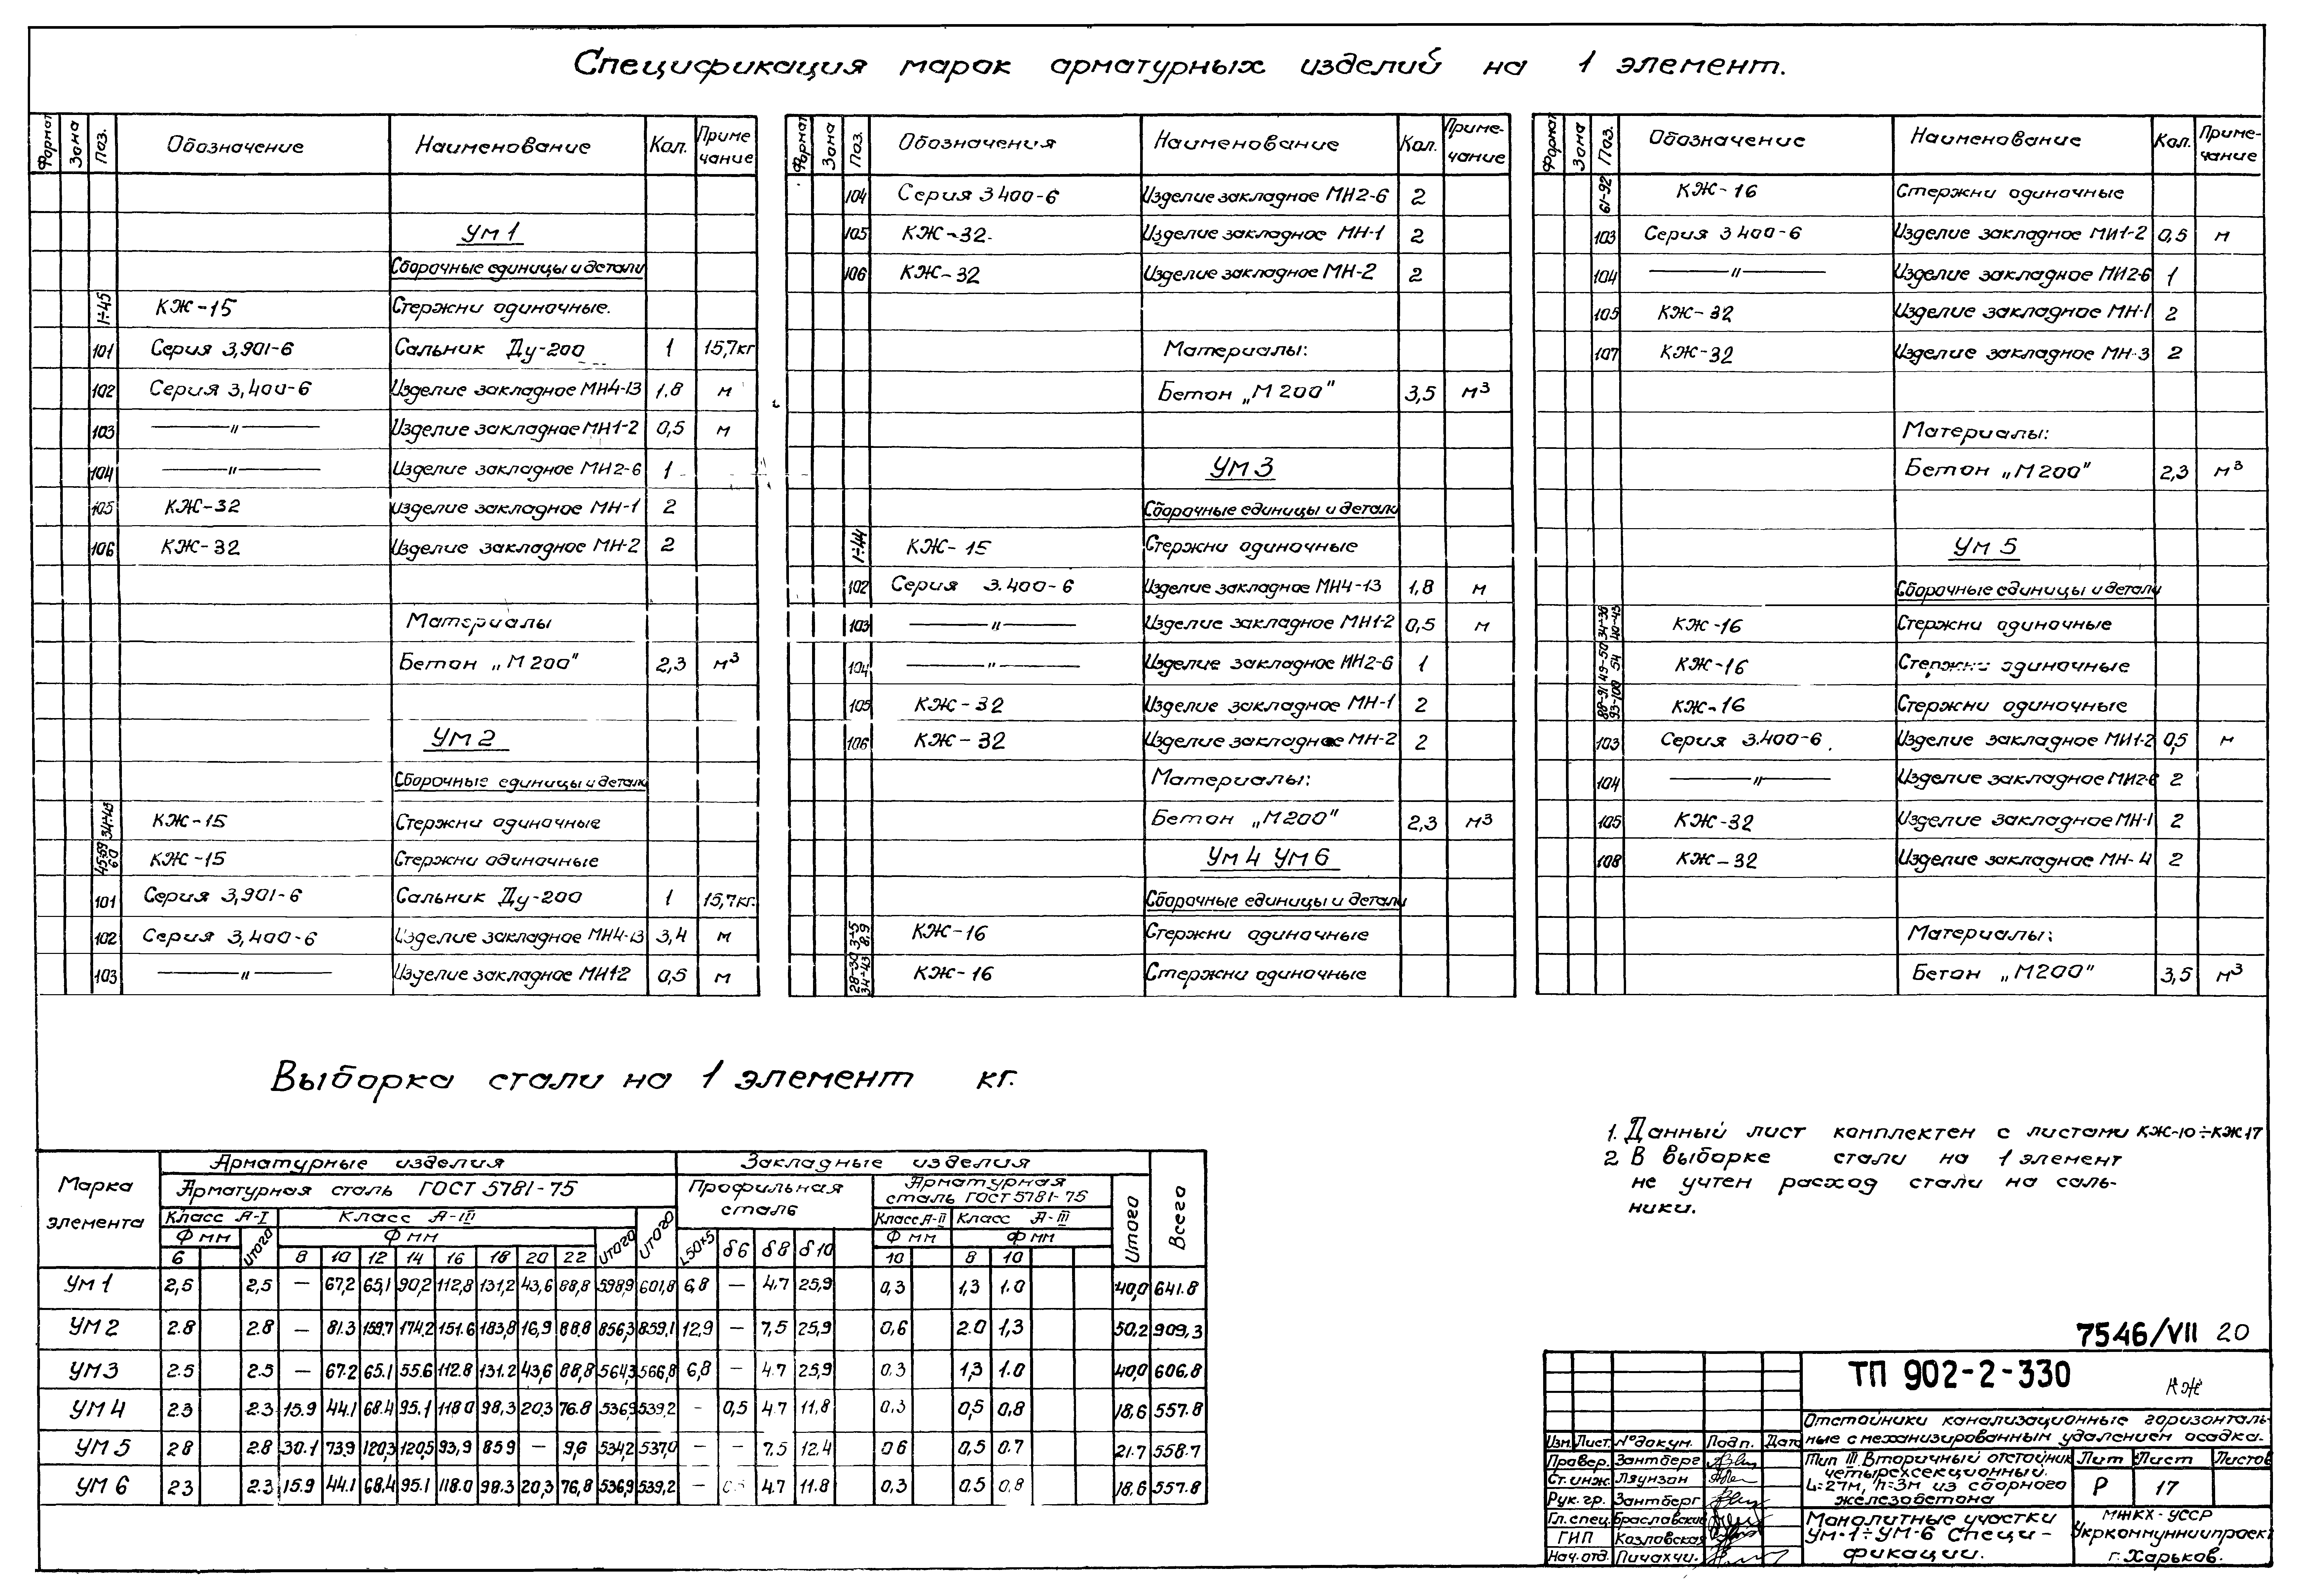 Спецификация марок арматурных изделий на 1 элемент.
Формат Зона Поз. Обозначение Наименование Кол. Примечание
Ум 1
Сборочные единицы и детали
1÷45 КЖ-15 Стержни одиночные.
101 Серия 3,901-6 Сальник Ду-200 1 15,7кг
102 Серия 3,400-6 Изделие закладное МН4-13 1.8 м
103 —〃— Изделие закладное МН1-2 0,5 м
104 —〃— Изделие закладное МН2-6 1
105 КЖ-32 Изделие закладное МН-1 2
106 КЖ-32 Изделие закладное МН-2 2
Материалы
Бетон „М200" 2,3 м³
Ум 2
Сборочные единицы и детали
34÷43 КЖ-15 Стержни одиночные
45÷59 60 КЖ-15 Стержни одиночные
101 Серия 3,901-6 Сальник Ду-200 1 15,7кг.
102 Серия 3,400-6 Изделие закладное МН4-13 3,4 м
103 —〃— Изделие закладное МН1-2 0,5 м
Формат Зона Поз. Обозначения Наименование Кол. Примечание
104 Серия 3400-6 Изделие закладное МН2-6 2
105 КЖ-32. Изделие закладное МН-1 2
106 КЖ-32 Изделие закладное МН-2 2
Материалы:
Бетон „М200" 3,5 м³
Ум 3
Сборочные единицы и детали
1÷44 КЖ-15 Стержни одиночные
102 Серия 3.400-6 Изделие закладное МН4-13 1,8 м
103 —〃— Изделие закладное МН1-2 0,5 м
104 —〃— Изделие закладное МН2-6 1
105 КЖ-32 Изделие закладное МН-1 2
106 КЖ-32 Изделие закладное МН-2 2
Материалы:
Бетон „М200" 2,3 м³
Ум 4 Ум 6
Сборочные единицы и детали
3÷5 8,9 КЖ-16 Стержни одиночные
28-30 34÷43 КЖ-16 Стержни одиночные
Формат Зона Поз. Обозначение Наименование Кол. Примечание
61-92 КЖ-16 Стержни одиночные
103 Серия 3400-6 Изделие закладное МН1-2 0,5 м
104 —〃— Изделие закладное МН2-6 1
105 КЖ-32 Изделие закладное МН-1 2
107 КЖ-32 Изделие закладное МН-3 2
Материалы:
Бетон „М200" 2,3 м³
Ум 5
Сборочные единицы и детали
34÷38 40-43 КЖ-16 Стержни одиночные
49-50 54 КЖ-16 Стержни одиночные
88-91 93-100 КЖ-16 Стержни одиночные
103 Серия 3.400-6 Изделие закладное МН1-2 0,5 м
104 —〃— Изделие закладное МН2-6 2
105 КЖ-32 Изделие закладное МН-1 2
108 КЖ-32 Изделие закладное МН-4 2
Материалы:
Бетон „М200" 3,5 м³
Выборка стали на 1 элемент кг.
Марка элемента Арматурные изделия Закладные изделия Всего
Арматурная сталь ГОСТ 5781-75 Профильная сталь Арматурная сталь ГОСТ 5781-75 Итого
Класс А-I Класс А-III Итого Класс А-II Класс А-III
Ф мм Итого Ф мм Итого L50×5 δ6 δ8 δ10 Ф мм Ф мм
6 8 10 12 14 16 18 20 22 10 8 10
Ум 1 2,5 2,5 — 67,2 65,1 90,2 112,8 131,2 43,6 88,8 598,9 601,8 6,8 — 4.7 25,9 0,3 1,3 1.0 40,0 641.8
Ум 2 2.8 2.8 — 81.3 159.7 174.2 151.6 183,8 16,9 88.8 856,3 859,1 12,9 — 7,5 25,9 0,6 2.0 1,3 50,2 909,3
Ум 3 2.5 2.5 — 67.2 65.1 55.6 112.8 131.2 43,6 88,8 564,3 566,8 6,8 — 4.7 25,9 0.3 1,3 1.0 40,0 606,8
Ум 4 2.3 2.3 15.9 44.1 68.4 95.1 118.0 98,3 20,3 76.8 536,9 539,2 - 0,5 4.7 11,8 0,3 0,5 0,8 18,6 557.8
Ум 5 2.8 2.8 30.1 73,9 120,3 120,5 93,9 85.9 — 9,6 534,2 537,0 - - 7.5 12.4 0.6 0,5 0.7 21.7 558.7
Ум 6 2.3 2.3 15.9 44.1 68.4 95.1 118.0 98.3 20,3 76,8 536,9 539,2 — 0.5 4.7 11.8 0,3 0.5 0.8 18.6 557.8
1. Данный лист комплектен с листами КЖ-10÷КЖ17
2. В выборке стали на 1 элемент
не учтен расход стали на саль-
ники.
7546/VII 20
ТП 902-2-330 КЖ
Отстойники канализационные горизонталь-
ные с механизированным удалением осадка.
Изм. Лист. № докум. Подп. Дата
Провер. Зантберг
Ст.инж. Ляунзон
Рук.гр. Зантберг
Гл.спец. Браславский
ГИП Козловская
Нач.отд.
Тип III. Вторичный отстойник
четырехсекционный.
L=27м, h=3м из сборного
железобетона
Лит Лист Листов
Р 17
Монолитные участки
Ум-1÷Ум-6 Специ-
фикации.
МЖКХ-УССР
Укркоммунниипроект
г. Харьков.